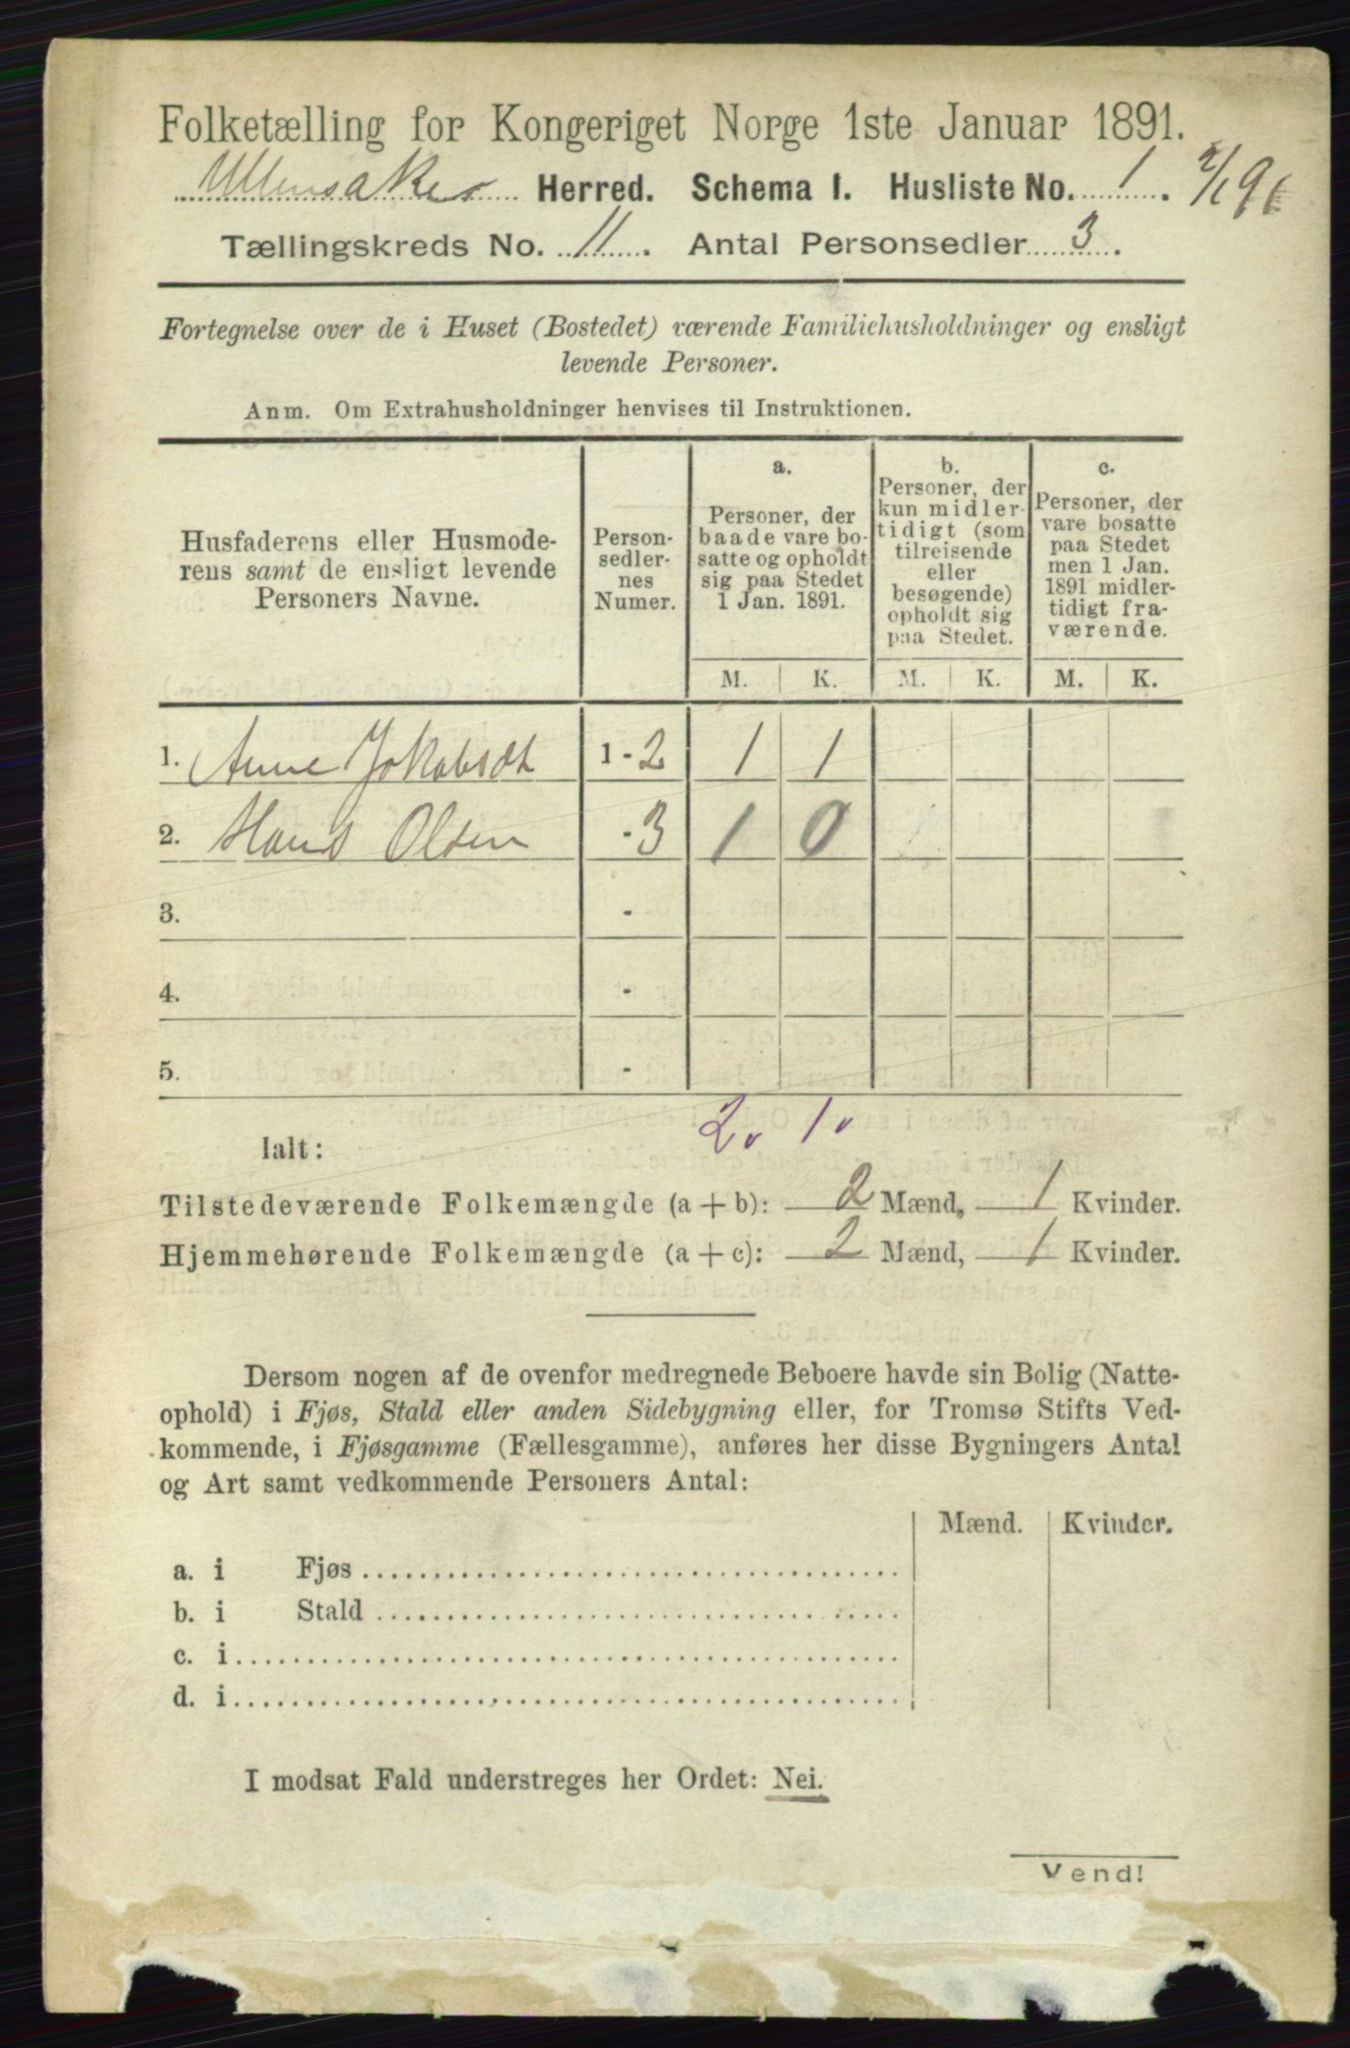 Folketælling for Kongeriget Norge 1ste Januar 1891.
Ullensaker Herred. Schema I. Husliste No. 1.
Tællingskreds No. 11. Antal Personsedler 3.
Fortegnelse over de i Huset (Bostedet) værende Familiehusholdninger og ensligt
levende Personer.
Anm. Om Extrahusholdninger henvises til Instruktionen.
Husfaderens eller Husmode-
rens samt de ensligt levende
Personers Navne.
Person-
sedler-
nes
Numer.
a.
Personer, der
baade vare bo-
satte og opholdt
sig paa Stedet
1 Jan. 1891.
b.
Personer, der
kun midler-
tidigt (som
tilreisende
eller
besøgende)
opholdt sig
paa Stedet.
c.
Personer, der
vare bosatte
paa Stedet
men 1 Jan.
1891 midler-
tidigt fra-
værende.
M. K. M. K. M. K.
1. Anne Jokobsdt 1 - 2 1 1
2. Hans Olsen - 3 1 0
3. -
4. -
5. -
2. 1.
Ialt:
Tilstedeværende Folkemængde (a + b): 2 Mænd, 1 Kvinder.
Hjemmehørende Folkemængde (a + c): 2 Mænd, 1 Kvinder.
Dersom nogen af de ovenfor medregnede Beboere havde sin Bolig (Natte-
ophold) i Fjøs, Stald eller anden Sidebygning eller, for Tromsø Stifts Ved-
kommende, i Fjøsgamme (Fællesgamme), anføres her disse Bygningers Antal
og Art samt vedkommende Personers Antal:
Mænd. Kvinder.
a. i Fjøs
b. i Stald
c. i
d. i
I modsat Fald understreges her Ordet: Nei.
Vend!